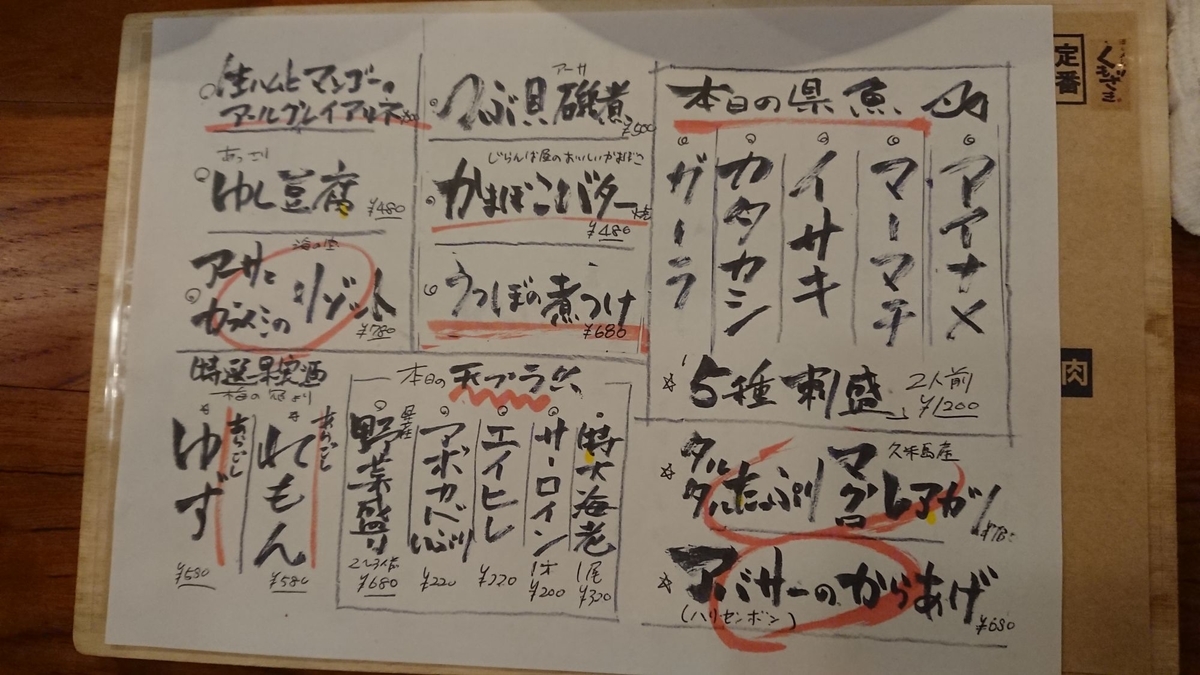 生ハムとマンゴーの
アールグレイアルネ
あっさり
ゆし豆腐
¥480
アーサと
カラスミの
リゾット
¥780
アーサ
つぶ貝磯煮
¥500
じらんば屋のおいしいかまぼこ
かまぼこバター焼
¥480
うつぼの煮つけ
¥680
本日の県魚
アイナメ
マーマチ
イサキ
カタカシ
ガーラ
☆5種刺盛
2人前
¥1200
久米島産
☆タルタルたっぷりマグロレアカツ
¥780
☆アバサーのからあげ
(ハリセンボン)
¥680
本日の天プラ
特大海老
1尾
¥320
サーロイン
1本
¥200
エイヒレ
¥220
アボカベいぶり
¥220
県産
野菜盛り
2〜3人前
¥680
特選果実酒
梅の宿より
あらごし
れもん
¥580
あらごし
ゆず
¥580
くまざき
定番
肉